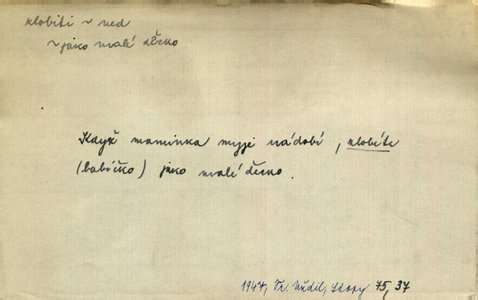 zlobiti ~ ned
~ jako malé děcko
Když maminka myje nádobí, zlobíte
(babičko) jako malé děcko.
1947, Fr. Nádil, Story 75, 37